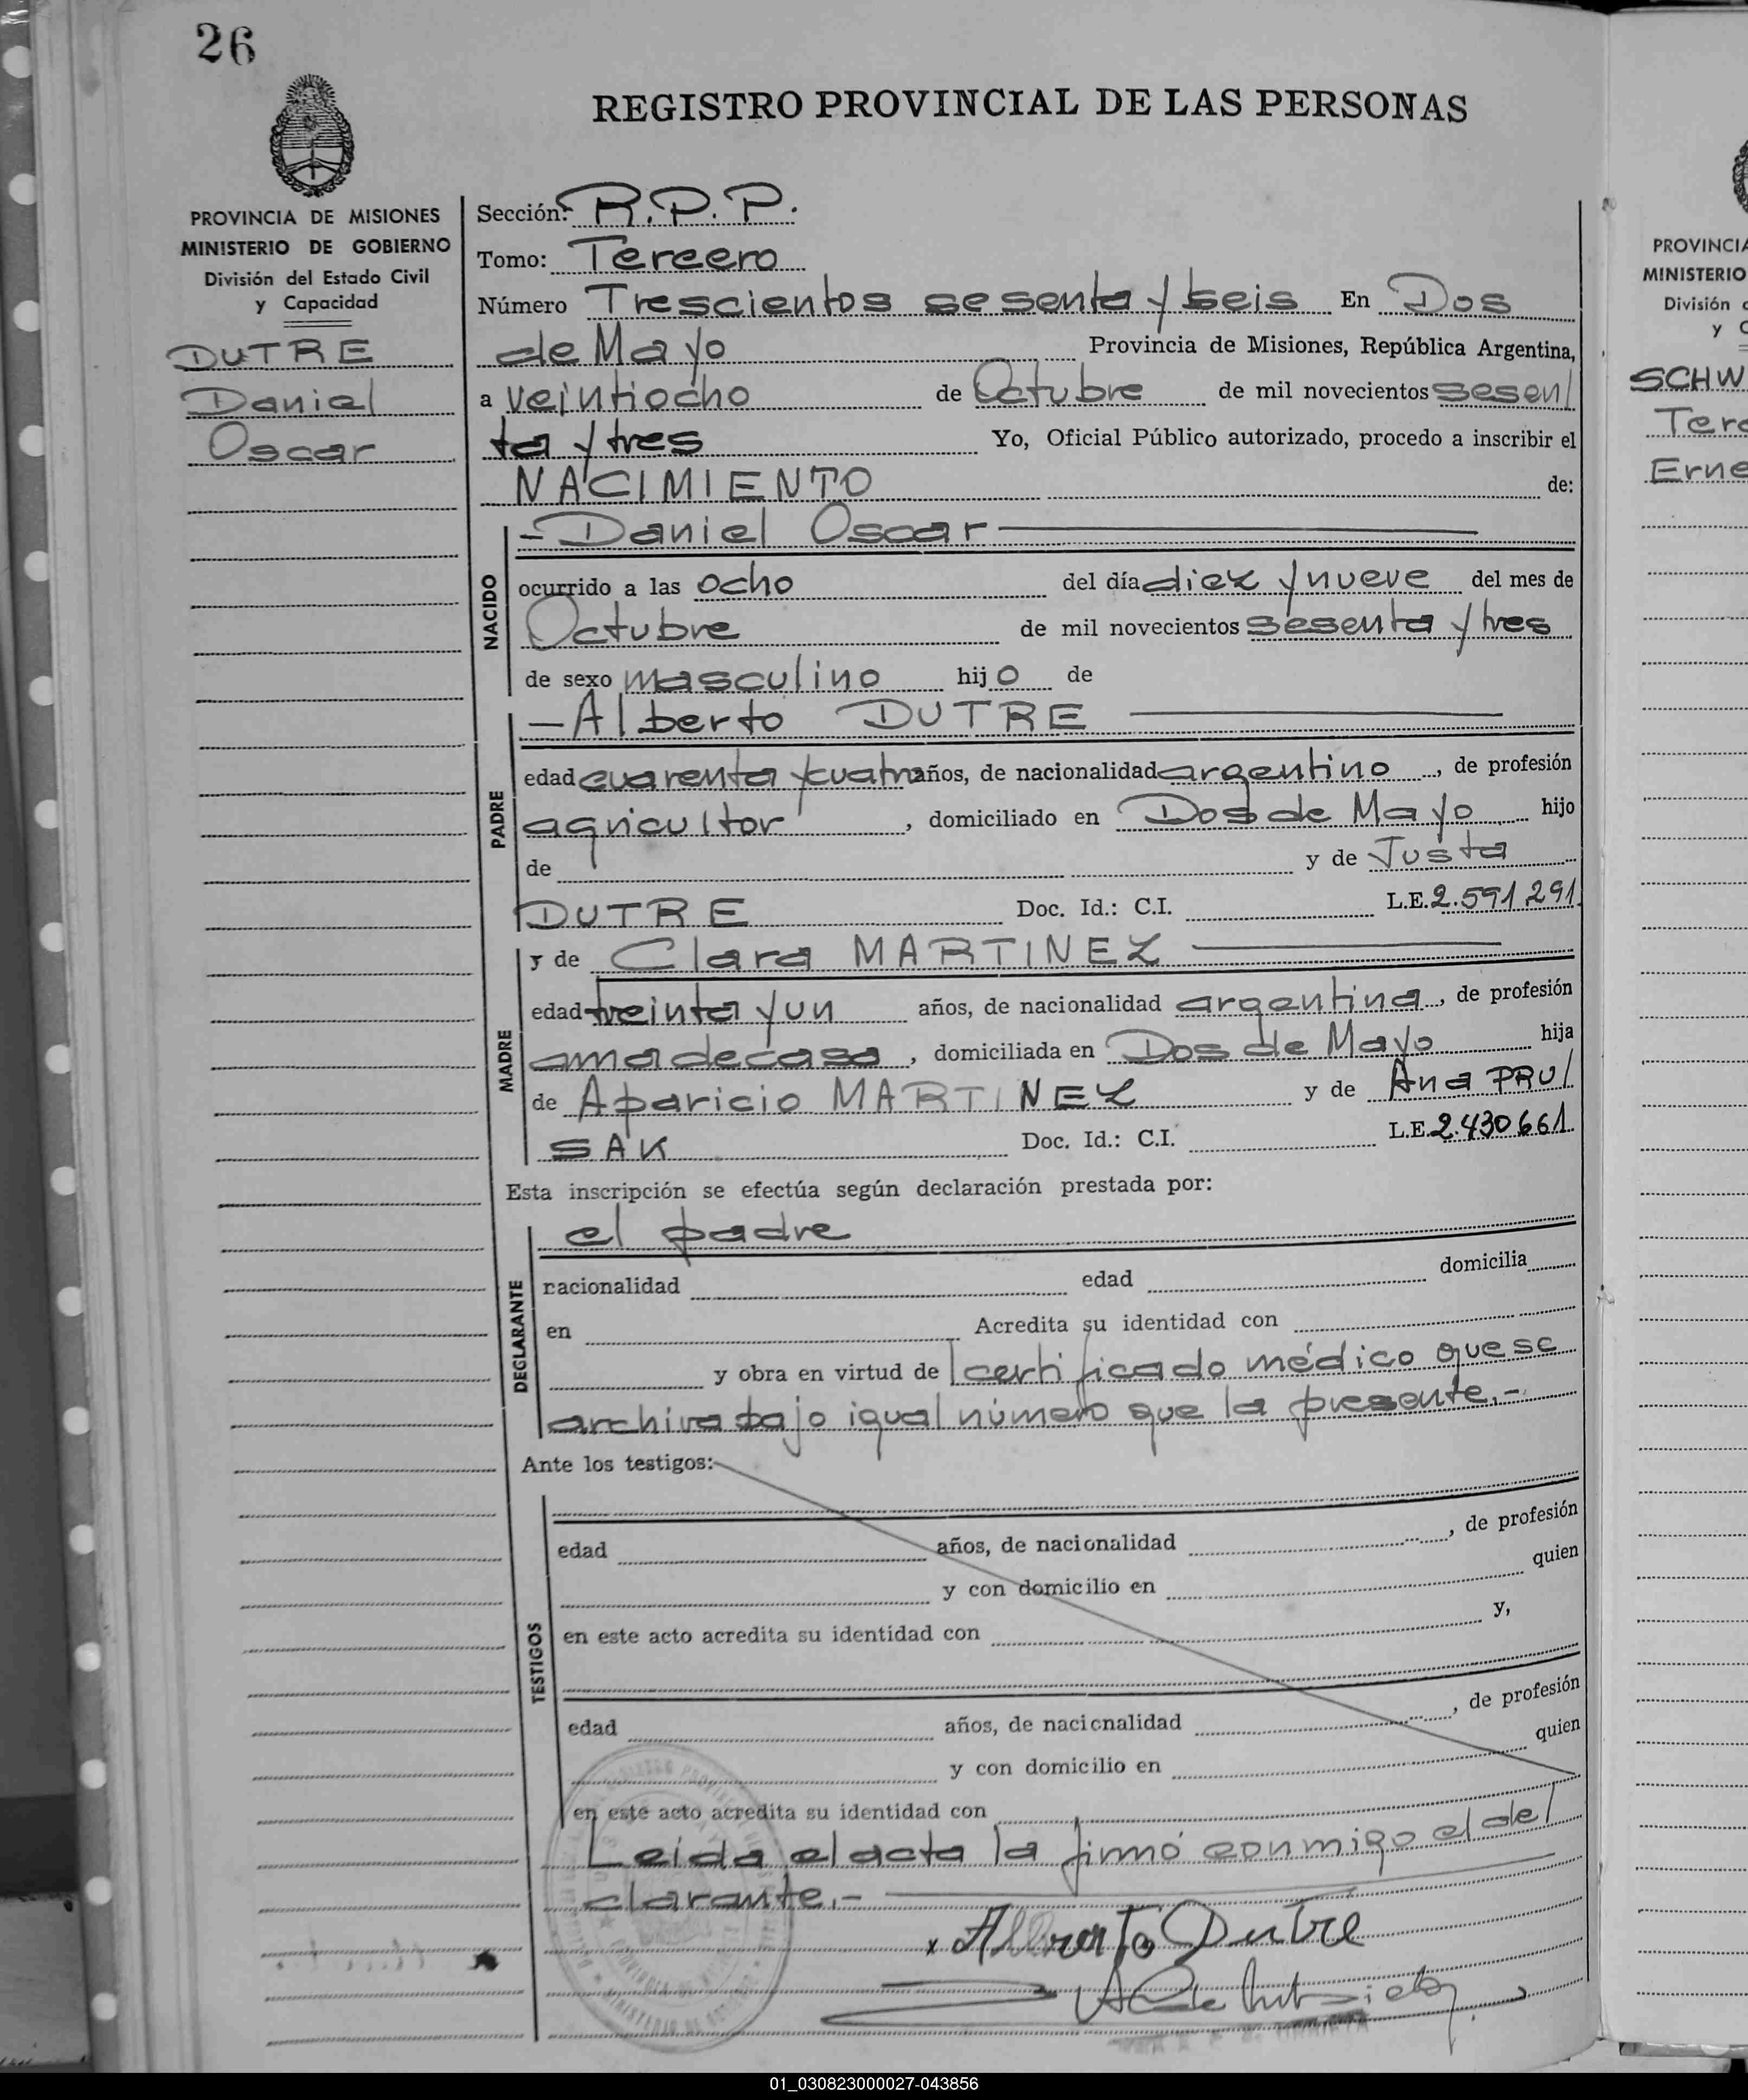 26
REGISTRO PROVINCIAL DE LAS PERSONAS
PROVINCIA DE MISIONES
MINISTERIO DE GOBIERNO
División del Estado Civil
y Capacidad
DUTRE
Daniel
Oscar
Sección: R.P.P.
Tomo: Tercero
Número Trescientos sesenta y seis En Dos
de Mayo Provincia de Misiones, República Argentina,
a veintiocho de Octubre de mil novecientos sesen/
ta y tres Yo, Oficial Público autorizado, procedo a inscribir el
NACIMIENTO de:
NACIDO
- Daniel Oscar
ocurrido a las ocho del día diez y nueve del mes de
Octubre de mil novecientos sesenta y tres
de sexo masculino hijo de
PADRE
- Alberto DUTRE
edad cuarenta y cuatro años, de nacionalidad argentino, de profesión
agricultor, domiciliado en Dos de Mayo hijo
de y de Justa
DUTRE Doc. Id.: C.I. L.E. 2.591.291
MADRE
y de Clara MARTINEZ
edad treinta y un años, de nacionalidad argentina, de profesión
ama de casa, domiciliada en Dos de Mayo hija
de Aparicio MARTINEZ y de Ana PRU/
SAK Doc. Id.: C.I. L.E. 2.430661
Esta inscripción se efectúa según declaración prestada por:
DECLARANTE
el padre
nacionalidad edad domicilia
en Acredita su identidad con
y obra en virtud de certificado médico que se
archiva bajo igual número que la presente.-
Ante los testigos:
TESTIGOS
edad años, de nacionalidad , de profesión
y con domicilio en quien
en este acto acredita su identidad con y,
edad años, de nacionalidad , de profesión
y con domicilio en quien
en este acto acredita su identidad con
Leida el acta la firmó conmigo el de/
clarante.-
x Alberto Dutre
PROVINCIA
MINISTERIO
División d
y C
SCHW
Tere
Erne
01_030823000027-043856